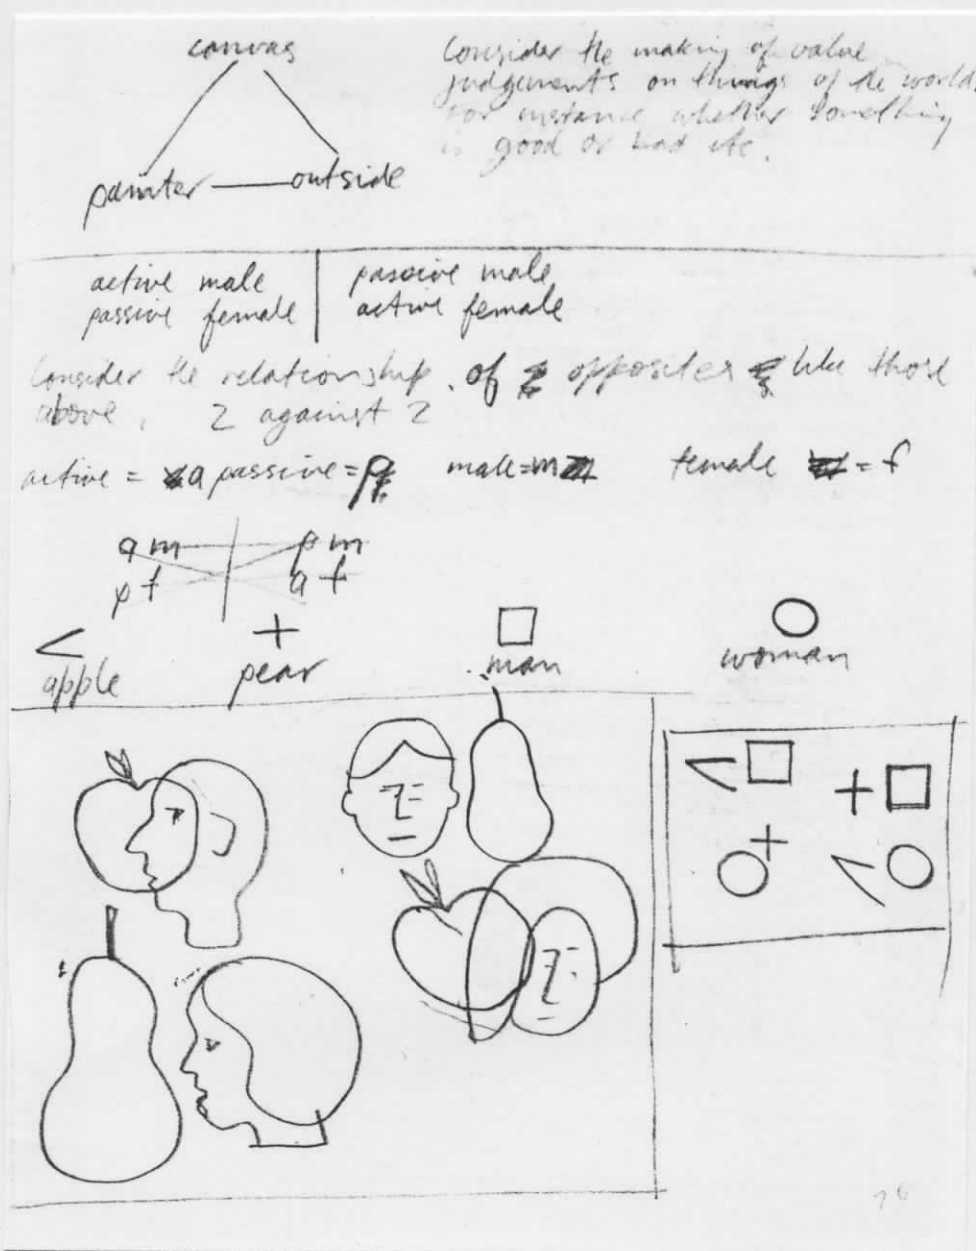 canvas
painter outside
Consider the making of value
judgements on things of the world.
For instance whether something
is good or bad etc.
active male
passive female
passive male
active female
Consider the relationship of opposites like those
above, 2 against 2
active = a passive = p male = m female = f
a m p m
p f a f
< + □ ○
apple pear man woman